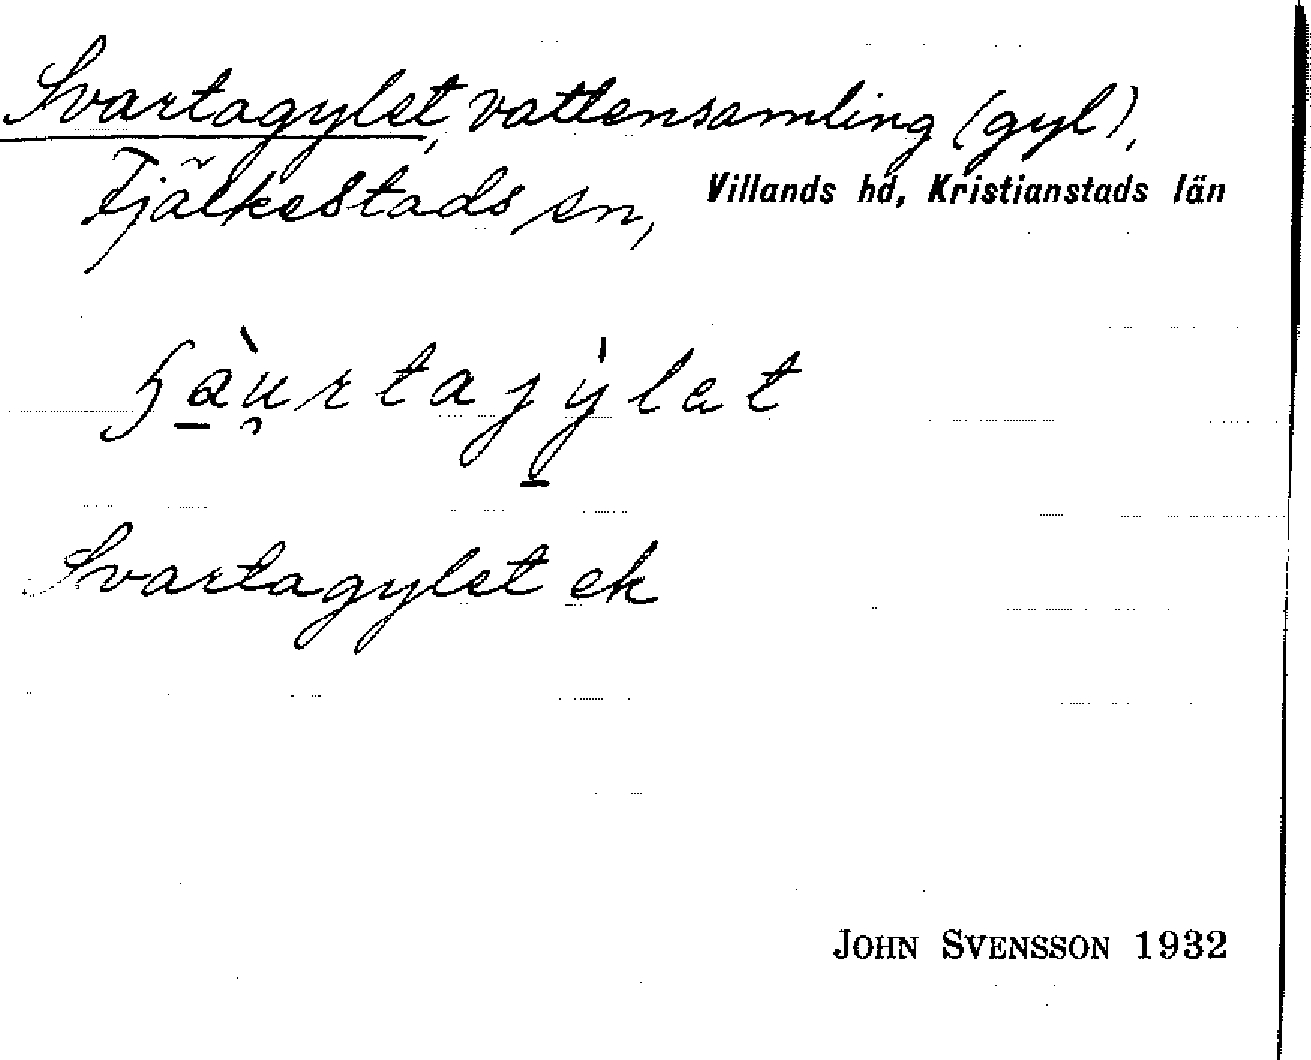 Svartagylet, vattensamling (gyl),
Fjälkestads sn, Villands hd, Kristianstads län
Svartagylet ek
JOHN SVENSSON 1932